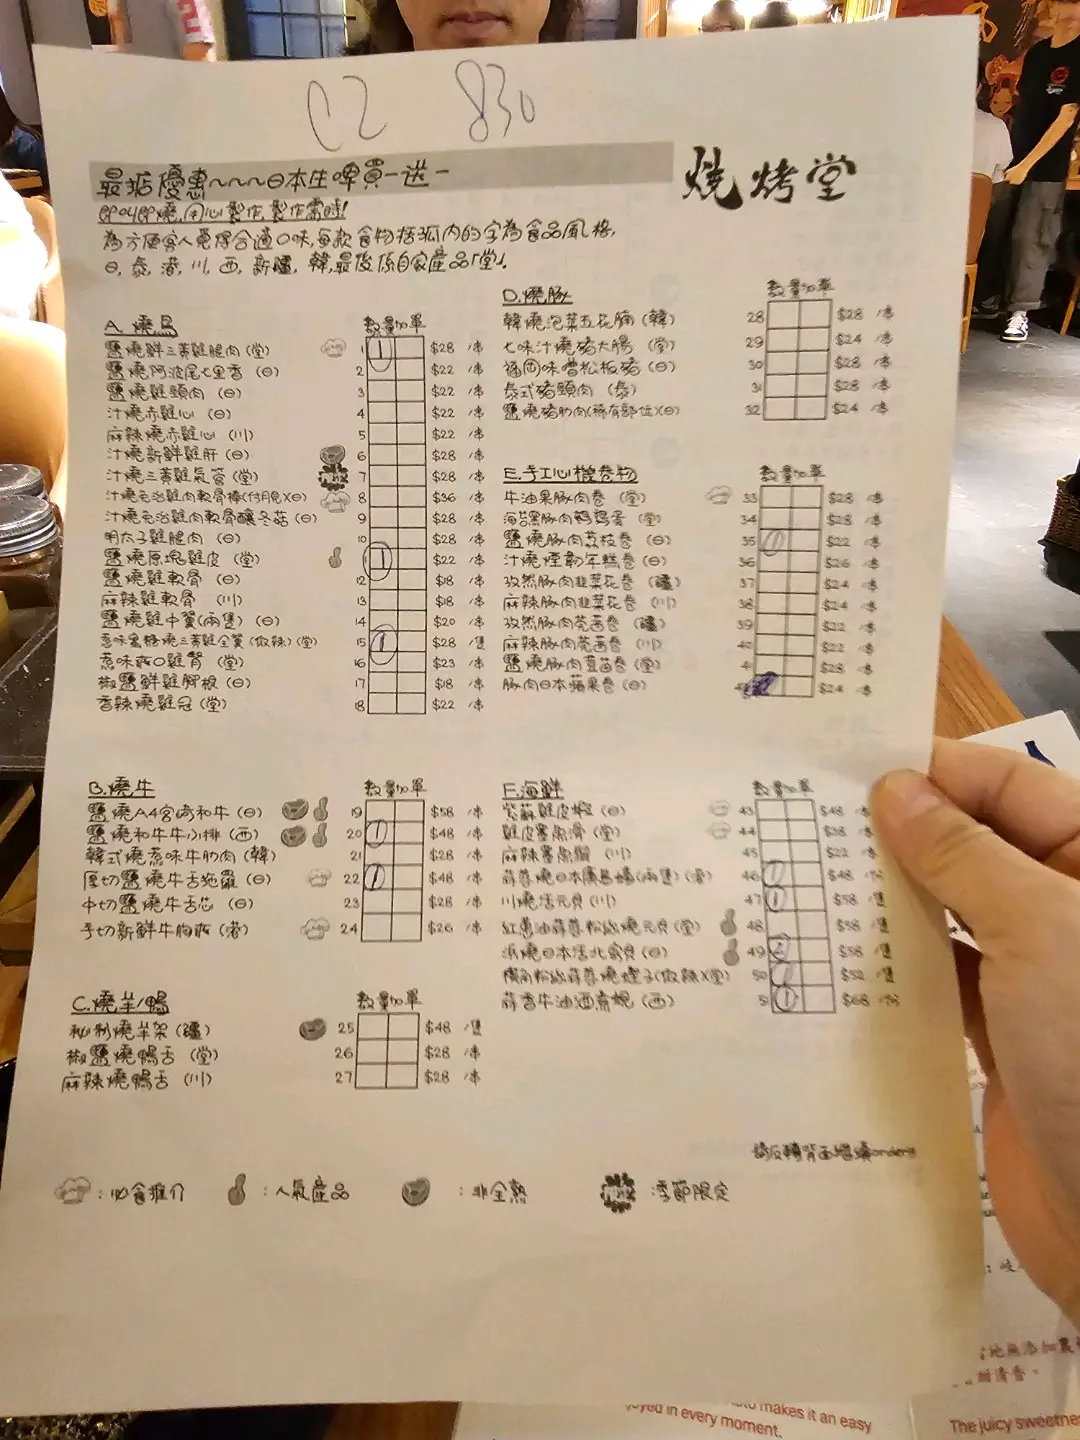 C2 830
最抵優惠~~~~日本生啤買一送一
燒烤堂
即叫即燒,用心製作,製作需時!
為方便客人覓得合適口味,每款食物括弧內的字為食品風格,
日,泰,港,川,西,新疆,韓,最後係自家產品「堂」.
A.燒鳥 數量加單
鹽燒鮮三黃雞腿肉(堂) 1 1 $28 /串
鹽燒阿波尾七里香(日) 2 $22 /串
鹽燒雞頸肉(日) 3 $22 /串
汁燒赤雞心(日) 4 $22 /串
麻辣燒赤雞心(川) 5 $22 /串
汁燒新鮮雞肝(日) 6 $28 /串
汁燒三黃雞氣管(堂) 7 $28 /串
汁燒免治雞肉軟骨棒(付月見)(日) 8 $36 /串
汁燒免治雞肉軟骨釀冬菇(日) 9 $28 /串
明太子雞腿肉(日) 10 $28 /串
鹽燒原塊雞皮(堂) 1 $22 /串
鹽燒雞軟骨(日) 12 $18 /串
麻辣雞軟骨(川) 13 $18 /串
鹽燒雞中翼(兩隻)(日) 14 $20 /串
蔥味蜜糖燒三黃雞全翼(微辣)(堂) 15 1 $28 /隻
蔥味雞腎(堂) 16 $23 /串
椒鹽鮮雞腳根(日) 17 $18 /串
香辣燒雞冠(堂) 18 $22 /串
B.燒牛 數量加單
鹽燒A4宮崎和牛(日) 19 $58 /串
鹽燒和牛牛小排(西) 20 1 $48 /串
韓式燒蔥味牛肋肉(韓) 21 $28 /串
厚切鹽燒牛舌拖羅(日) 22 1 $48 /串
中切鹽燒牛舌芯(日) 23 $28 /串
手切新鮮牛胸(港) 24 $26 /串
C.燒羊/鴨 數量加單
秘制燒羊架(疆) 25 $48 /隻
椒鹽燒鴨舌(堂) 26 $28 /串
麻辣燒鴨舌(川) 27 $28 /串
D.燒豚 數量加單
韓燒泡菜五花腩(韓) 28 $28 /串
七味汁燒豬大腸(堂) 29 $24 /串
福岡味噌松板豬(日) 30 $28 /串
泰式豬頸肉(泰) 31 $28 /串
鹽燒豬肋肉(稀有部位)(日) 32 $24 /串
E.手工心機卷物 數量加單
牛油果豚肉卷(堂) 33 $28 /串
海苔黑豚肉鵪鶉蛋(堂) 34 $28 /串
鹽燒豚肉荔枝卷(日) 35 1 $22 /串
汁燒煙韌年糕卷(日) 36 $26 /串
孜然豚肉韭菜花卷(疆) 37 $24 /串
麻辣豚肉韭菜花卷(川) 38 $24 /串
孜然豚肉芫茜卷(疆) 39 $22 /串
麻辣豚肉芫茜卷(川) $22 /串
鹽燒豚肉荳苗卷(堂) $28 /串
豚肉日本蘋果卷(日) $24 /串
F.海鮮 數量加單
紫蘇雞皮蝦(日) 43 $48 /串
雞皮墨魚滑(堂) 44 $38 /串
麻辣墨魚鬚(川) 45 $22 /串
蒜蓉燒日本廣島蠔(兩隻)(港) 46 1 $48
川燒活元貝(川) 47 1 $58 /隻
紅蔥油蒜蓉粉絲燒元貝(堂) 48 $58 /隻
浜燒日本活北寄貝(日) 49 2 $58 /隻
粉絲蒜蓉燒蟶子(微辣)(堂) 50 1 $52 /隻
蒜香牛油酒煮蜆(西) 51 1 $68
請反轉背面繼續order!!
:必食推介 :人氣產品 :非全熟 :季節限定
makes it an easy
in every moment.
The juicy sweetness